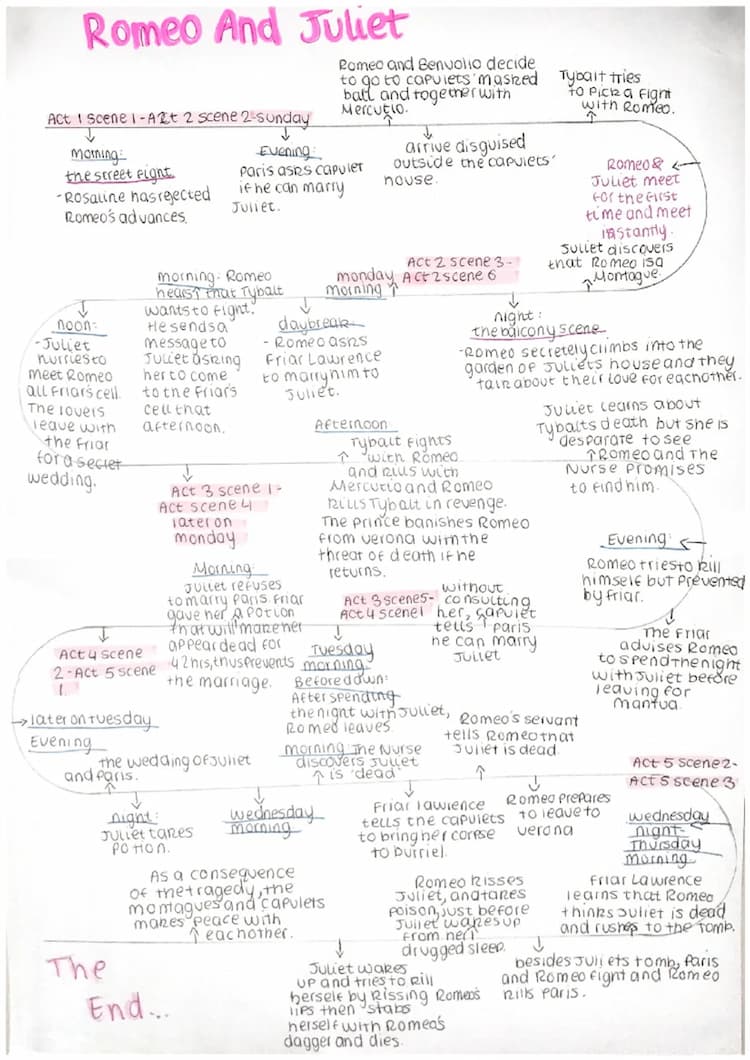 Romeo And Juliet
Romeo and Benvolio decide
to go to capulets' masked
ball and together with
Mercutio.
Tybalt tries
to pick a fight
with Romeo.
Act 1 scene 1 - Act 2 scene 2 - Sunday
Morning:
the street fight
- Rosaline has rejected
Romeo's advances.
Evening:
Paris asks capulet
if he can marry
Juliet.
arrive disguised
outside the capulets'
house.
Romeo &
Juliet meet
for the first
time and meet
instantly.
Juliet discovers
that Romeo is a
Montague.
Act 2 scene 3 -
Act 2 scene 6
monday
morning
morning: Romeo
hears that Tybalt
wants to fight.
He sends a
message to
Juliet asking
her to come
to the Friar's
cell that
afternoon.
noon:
- Juliet
hurries to
meet Romeo
at Friar's cell.
The lovers
leave with
the Friar
for a secret
wedding.
daybreak
- Romeo asks
Friar Lawrence
to marry him to
Juliet.
night:
the balcony scene
- Romeo secretely climbs into the
garden of Juliets house and they
talk about their love for eachother.
Afternoon
Tybalt fights
with Romeo
and kills with
Mercutio and Romeo
kills Tybalt in revenge.
The Prince banishes Romeo
from verona with the
threat of death if he
returns.
Juliet learns about
Tybalts death but she is
desparate to see
Romeo and The
Nurse Promises
to find him.
Act 3 scene 1 -
Act scene 4
later on
monday
Evening:
Romeo tries to kill
himself but prevented
by friar.
The Friar
advises Romeo
to spend the night
with Juliet before
leaving for
mantua.
Act 3 scene 5 -
Act 4 scene 1
without
consulting
her, capulet
tells Paris
he can marry
Juliet
Tuesday
morning
Before down:
After spending
the night with Juliet,
Romeo leaves.
Morning:
Juliet refuses
to marry Paris. Friar
gave her a potion
that will make her
appear dead for
42hrs, thus prevents
the marriage.
Act 4 scene
2 - Act 5 scene
1
later on Tuesday
Evening
the wedding of Juliet
and Paris.
night:
Juliet takes
potion.
wednesday
morning
morning The Nurse
discovers Juliet
is 'dead'
Friar lawrence
tells the capulets
to bring her corpse
to burriel.
Romeo's servant
tells Romeo that
Juliet is dead.
Romeo prepares
to leave to
verona
Act 5 scene 2 -
Act 5 scene 3
wednesday
night -
Thursday
morning
Friar Lawrence
learns that Romeo
thinks Juliet is dead
and rushes to the tomb.
besides Juliets tomb, Paris
and Romeo fight and Romeo
kills Paris.
Romeo kisses
Juliet, and takes
poison, just before
Juliet wakes up
from her
drugged sleep.
Juliet wakes
up and tries to kill
herself by kissing Romeo's
lips then stabs
herself with Romeo's
dagger and dies.
As a consequence
of the tragedy, the
montagues and capulets
makes peace with
eachother.
The
End...